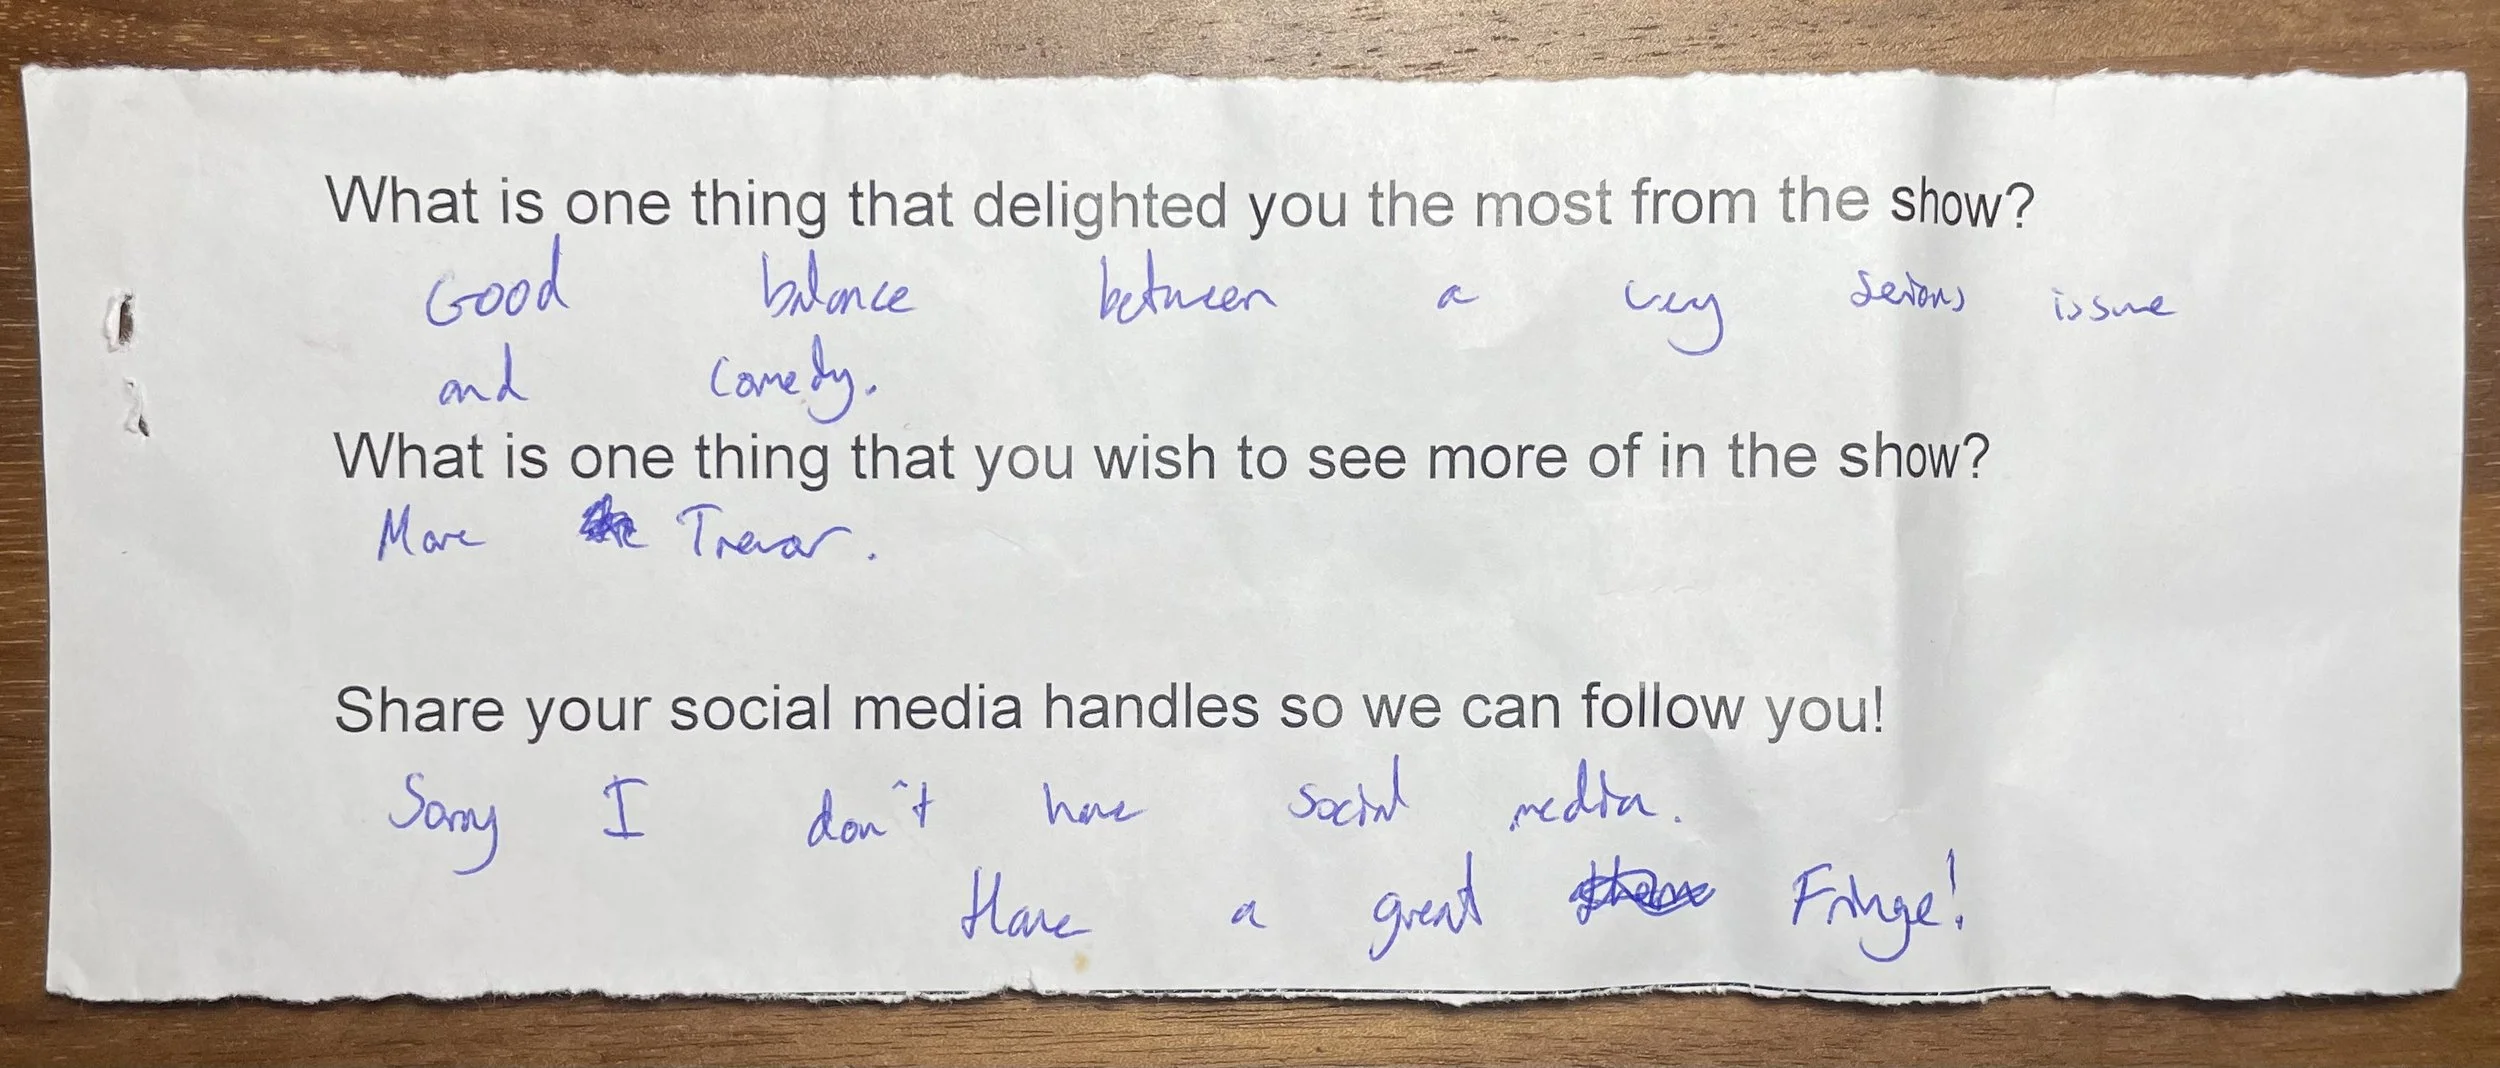 What is one thing that delighted you the most from the show?
Good balance between a very serious issue
and comedy.
What is one thing that you wish to see more of in the show?
More Trevor.
Share your social media handles so we can follow you!
Sorry I don't have social media.
Have a great Fringe!